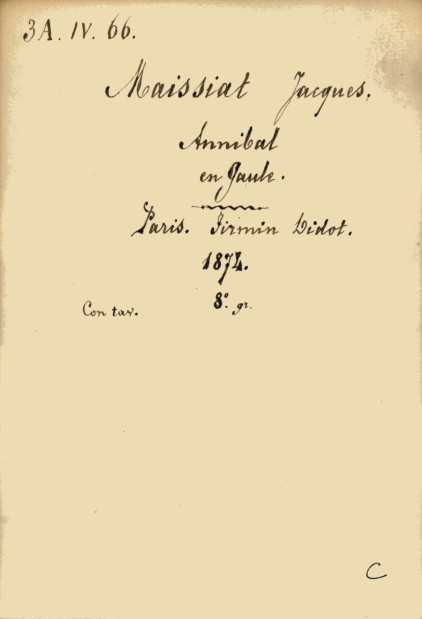 3A. IV. 66.
Maissiat Jacques.
Annibal
en Gaule.
Paris. Firmin Didot.
1874.
8° gr.
Con tav.
C